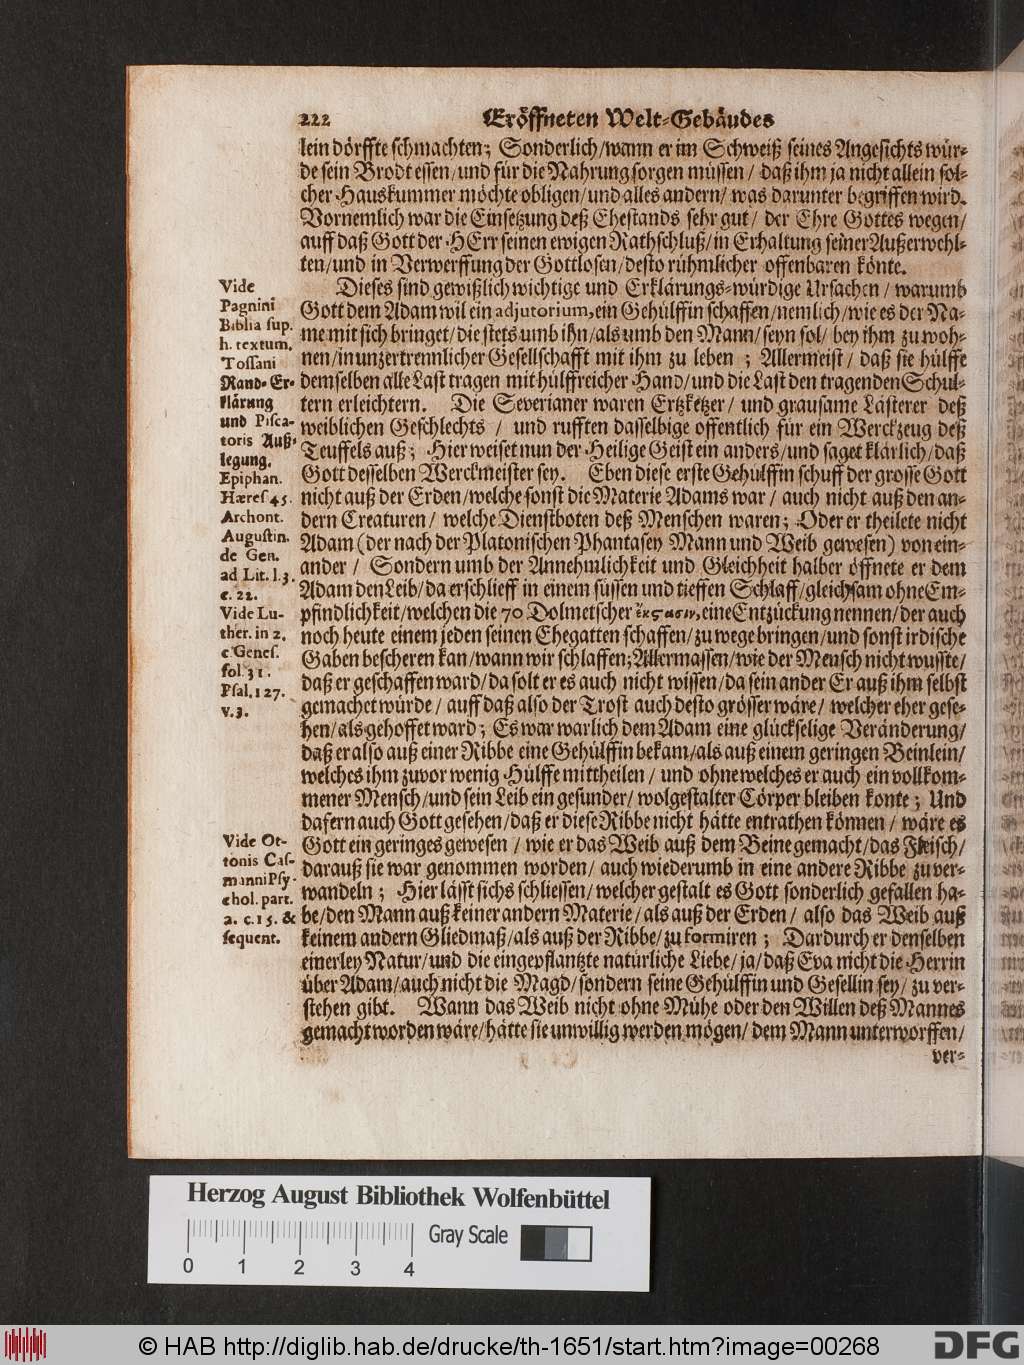 222 Eröffneten Welt-Gebäudes
lein dörffte schmachten; Sonderlich/wann er im Schweiß seines Angesichts wür-
de sein Brodt essen/und für die Nahrung sorgen müssen/ daß ihm ja nicht allein sol-
cher Hauskummer möchte obligen/und alles andern/ was darunter begriffen wird.
Vornemlich war die Einsetzung deß Ehestands sehr gut/ der Ehre Gottes wegen/
auff daß Gott der HErr seinen ewigen Rathschluß/in Erhaltung seiner Außerwehl-
ten/und in Verwerffung der Gottlosen/desto rühmlicher offenbaren könte.
Dieses sind gewißlich wichtige und Erklärungs-würdige Ursachen/ warumb
Gott dem Adam wil ein adjutorium, ein Gehülffin schaffen/nemlich/wie es der Na-
me mit sich bringet/die stets umb ihn/als umb den Mann/seyn sol/ bey ihm zu woh-
nen/in unzertrennlicher Gesellschafft mit ihm zu leben ; Allermeist/ daß sie hülffe
demselben alle Last tragen mit hülffreicher Hand/und die Last den tragenden Schul-
tern erleichtern. Die Severianer waren Ertzketzer/ und grausame Lästerer deß
weiblichen Geschlechts / und rufften dasselbige offentlich für ein Werckzeug deß
Teuffels auß; Hier weiset nun der Heilige Geist ein anders/und saget klärlich/daß
Gott desselben Werckmeister sey. Eben diese erste Gehülffin schuff der grosse Gott
nicht auß der Erden/welche sonst die Materie Adams war/ auch nicht auß den an-
dern Creaturen/ welche Dienstboten deß Menschen waren; Oder er theilete nicht
Adam (der nach der Platonischen Phantasey Mann und Weib gewesen) von ein-
ander/ Sondern umb der Annehmlichkeit und Gleichheit halber öffnete er dem
Adam den Leib/da er schlieff in einem süssen und tieffen Schlaff/gleichsam ohne Em-
pfindlichkeit/welchen die 70 Dolmetscher ἔκστασιν, eine Entzückung nennen/der auch
noch heute einem jeden seinen Ehegatten schaffen/zu wege bringen/und sonst irdische
Gaben bescheren kan/wann wir schlaffen; Allermassen/wie der Mensch nicht wusste/
daß er geschaffen ward/da solt er es auch nicht wissen/da sein ander Er auß ihm selbst
gemachet würde/ auff daß also der Trost auch desto grösser wäre/ welcher eher gese-
hen/als gehoffet ward; Es war warlich dem Adam eine glückselige Veränderung/
daß er also auß einer Ribbe eine Gehülffin bekam/als auß einem geringen Beinlein/
welches ihm zuvor wenig Hülffe mittheilen/ und ohne welches er auch ein vollkom-
mener Mensch/und sein Leib ein gesunder/ wolgestalter Cörper bleiben konte; Und
dafern auch Gott gesehen/daß er diese Ribbe nicht hätte entrathen können/ wäre es
Gott ein geringes gewesen/ wie er das Weib auß dem Beine gemacht/das Fleisch/
darauß sie war genommen worden/ auch wiederumb in eine andere Ribbe zu ver-
wandeln ; Hier lässt sichs schliessen/welcher gestalt es Gott sonderlich gefallen ha-
be/den Mann auß keiner andern Materie/als auß der Erden/ also das Weib auß
keinem andern Gliedmaß/als auß der Ribbe/zu formiren ; Dardurch er denselben
einerley Natur/und die eingepflantzte natürliche Liebe/ja/daß Eva nicht die Herrin
über Adam/auch nicht die Magd/sondern seine Gehülffin und Gesellin sey/ zu ver-
stehen gibt. Wann das Weib nicht ohne Mühe oder den Willen deß Mannes
gemacht worden wäre/hätte sie unwillig werden mögen/ dem Mann unterworffen/
ver-
Vide
Pagnini
Biblia sup.
h. textum.
Tossani
Rand-Er-
klärung
und Pisca-
toris Auß-
legung.
Epiphan.
Hæres 45.
Archont.
Augustin.
de Gen.
ad Lit. l.3.
c. 22.
Vide Lu-
ther. in 2.
c Genes.
fol. 31.
Psal. 127.
v. 3.
Vide Ot-
tonis Cas-
manni Psy-
chol. part.
2. c. 15. &
sequent.
Herzog August Bibliothek Wolfenbüttel
Gray Scale
0 1 2 3 4
© HAB http://diglib.hab.de/drucke/th-1651/start.htm?image=00268
DFG